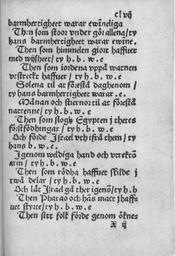 cl vij
barmhertigheet warar ewineliga
Then som stoor vnder gör allena/ ty
hans barmhertigheet warar ewine.
Then som himmelen giort haffuer
med wijsheet/ ty h. b. w. e
Then som iordena vppå watnen
vtstreckt haffuer/ ty h. b. w. e
Solena til at förestå daghenom/
ty hans barmhertigheet warar. e.
Månan och stiernor til at förestå
nattenne/ ty h. b. w. e.
Then som slogh Egypten j theres
förstfödhingar/ ty h. b. w. e
Och förde Israel vth ifrå them/ ty
hans b. w. e.
Igenom weldiga hand och vtrecktō
arm/ ty h. b. w. e.
Then som rödha haffuet skilde j
twå delar/ ty h. b. w. e
Och lät Israel gå ther igenō/ ty h. b
Then Pharao och hās macht j haff
uet störte/ ty h. b. w. e
Then sitt folk förde genom öknes
X ij